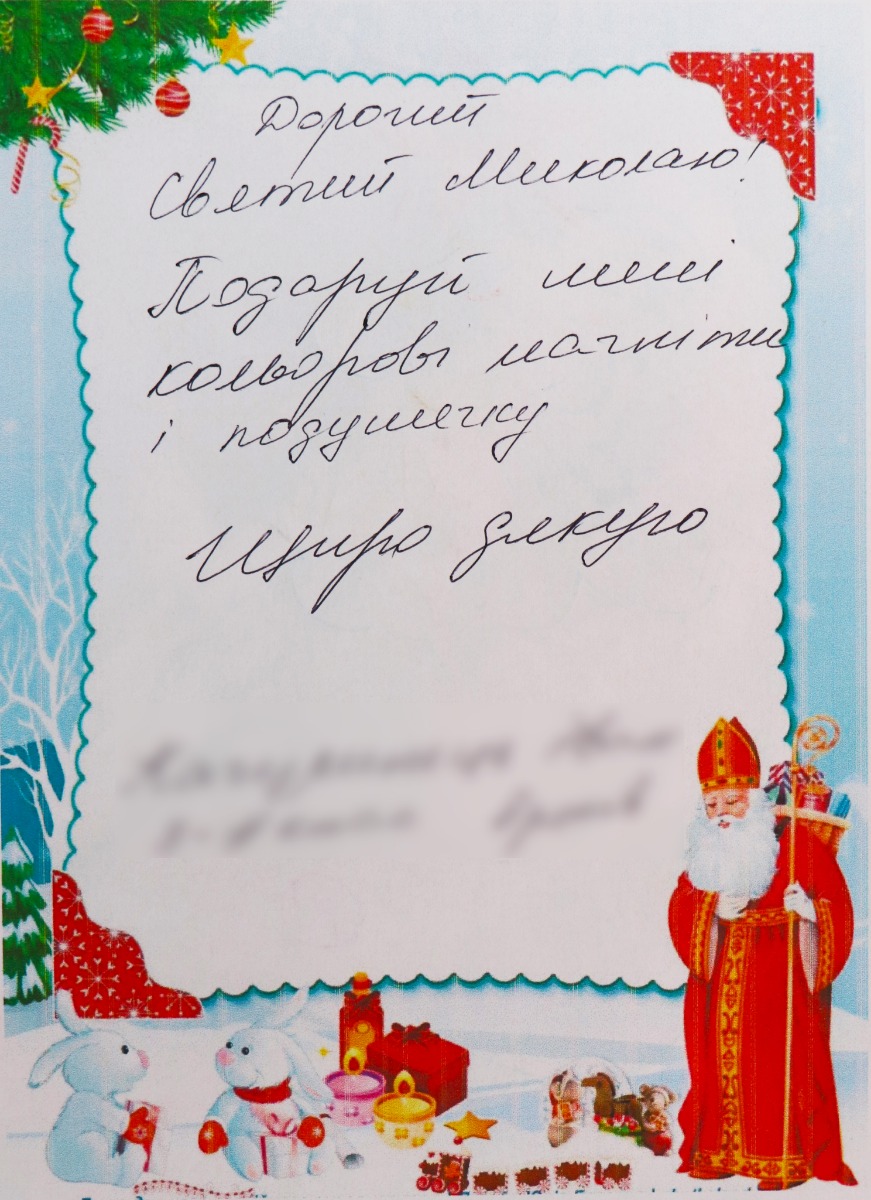 Дорогий
Святий Миколаю!
Подаруй мені
кольорові магніти
і подушечку
Щиро дякую